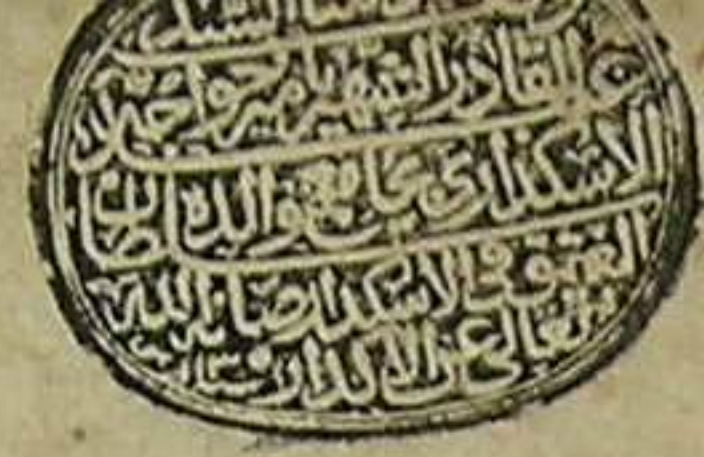 السيد
عبد القادر الشهير بامير خواجه
الاسكداري بجامع والده سلطان
العتيق في الاسكدار صانها الله
تعالى عن الاكدار سنة